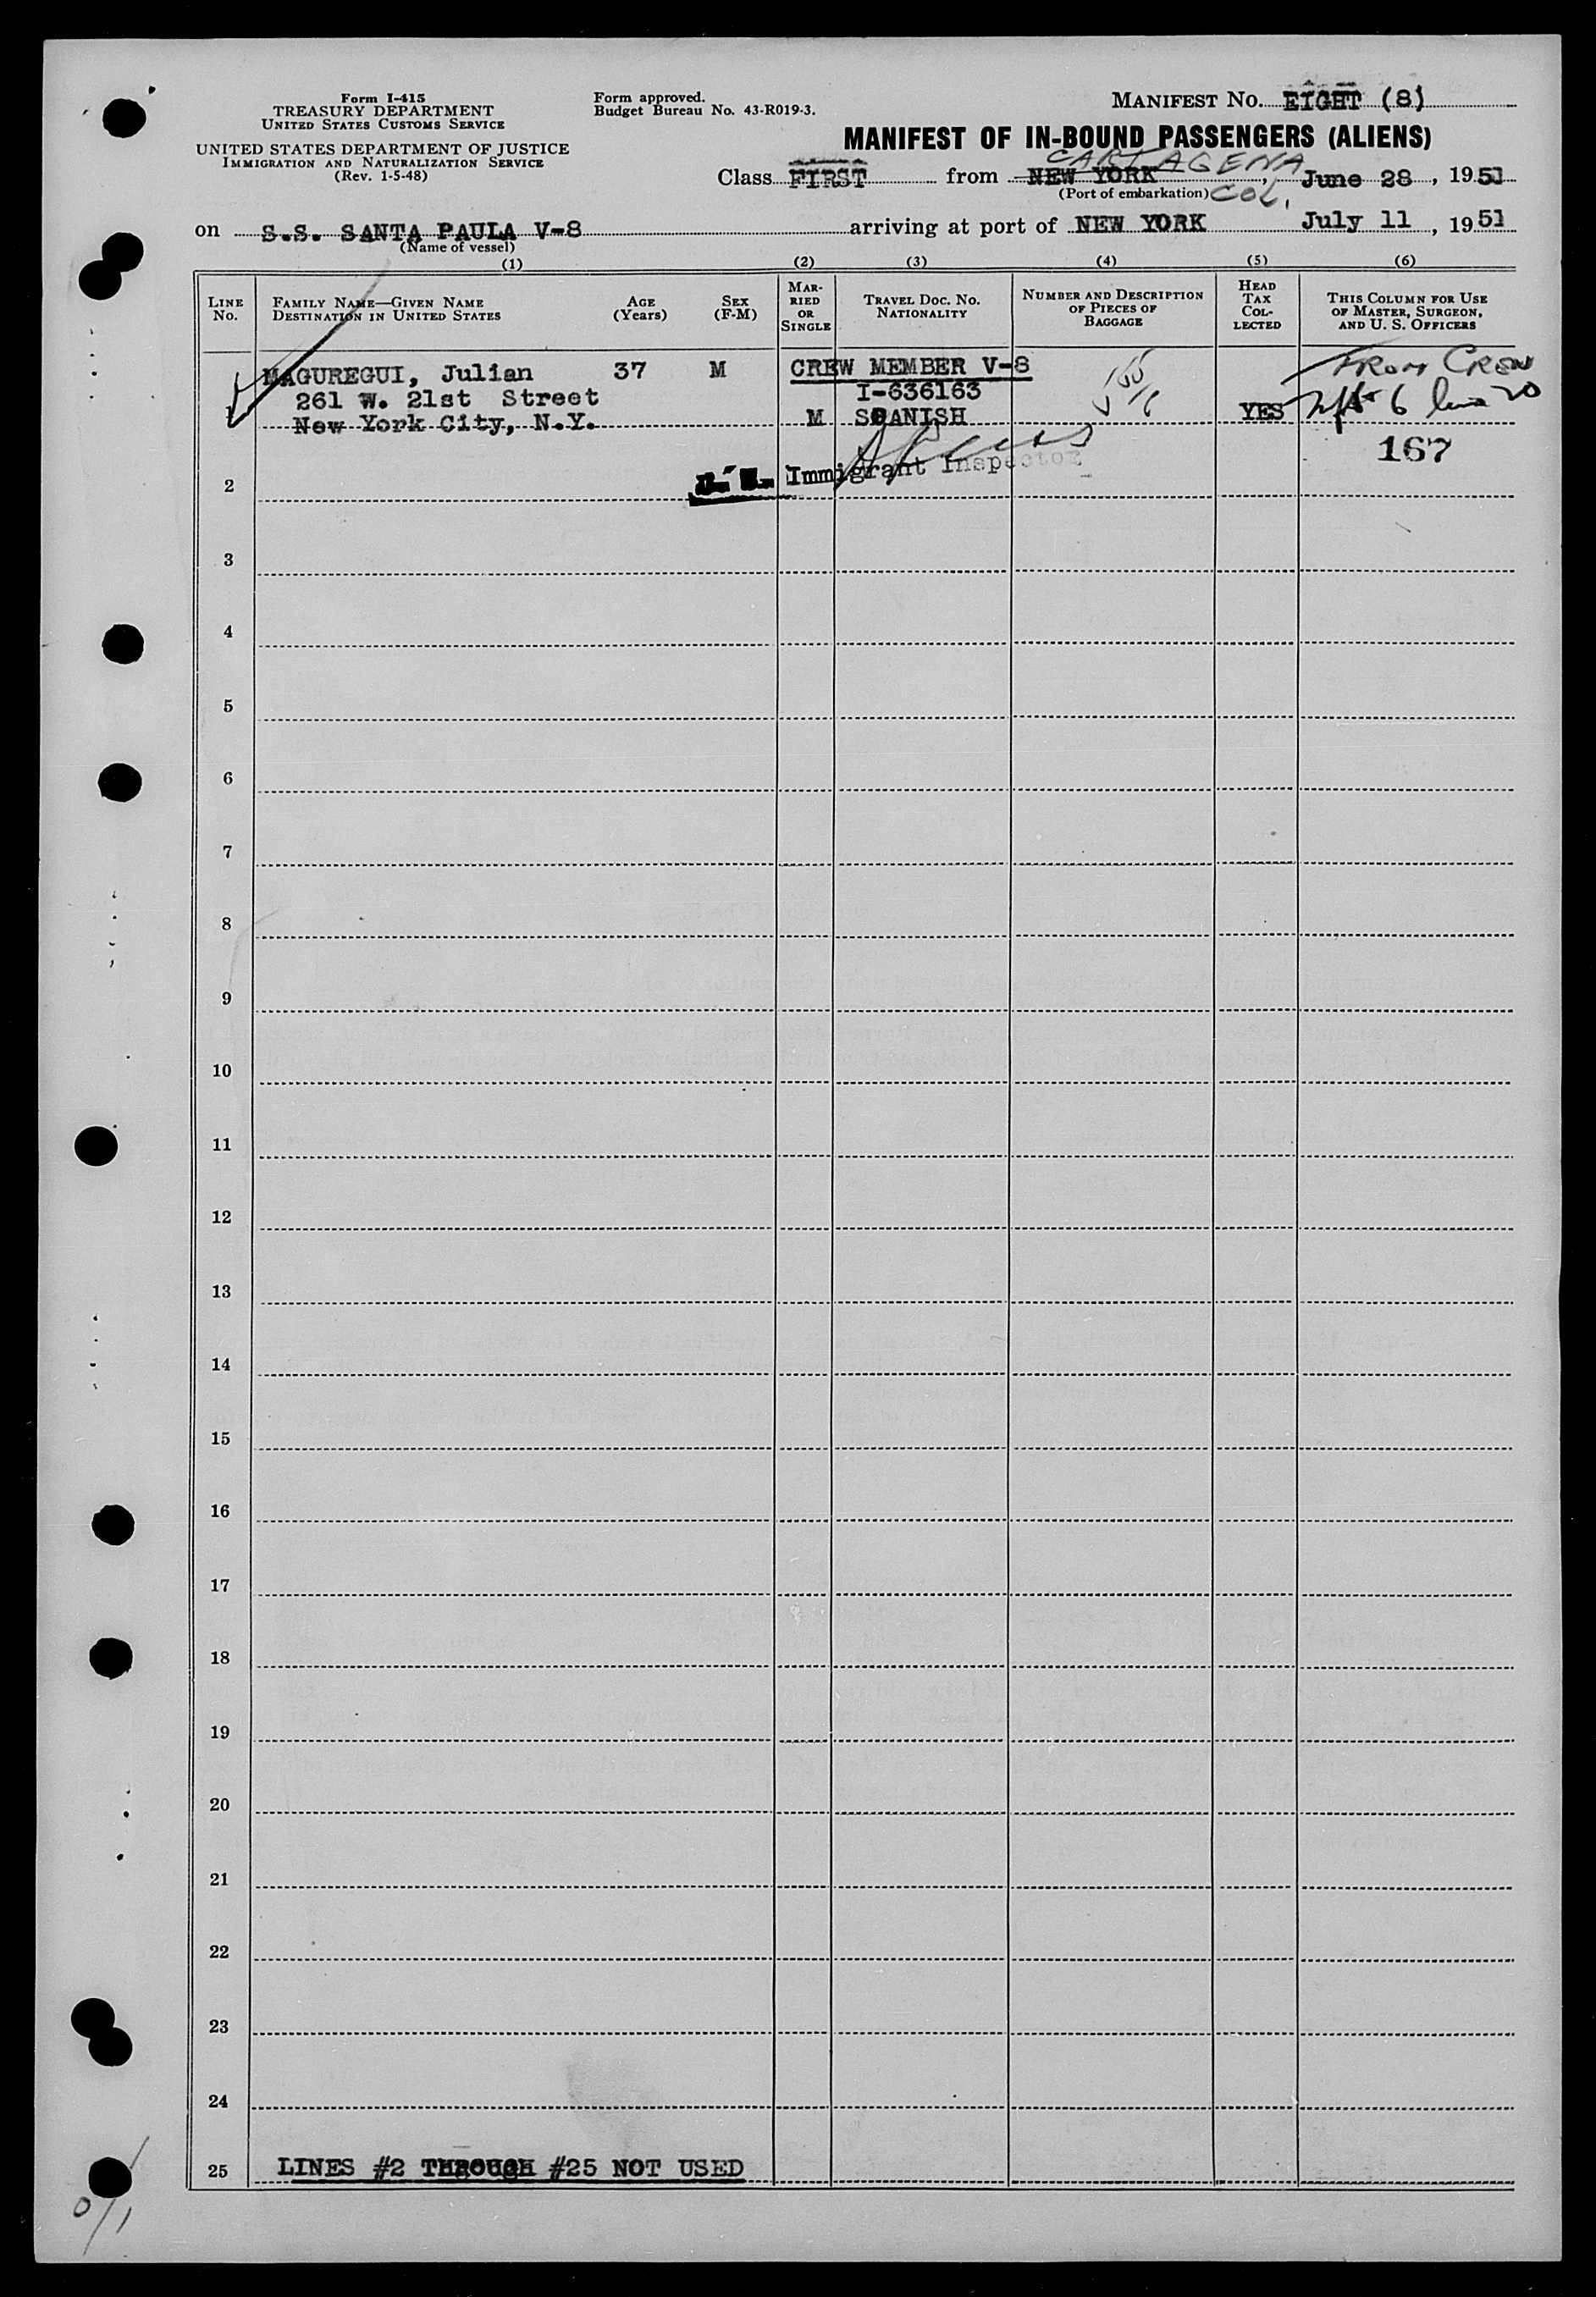 Form I-415
TREASURY DEPARTMENT
UNITED STATES CUSTOMS SERVICE
UNITED STATES DEPARTMENT OF JUSTICE
IMMIGRATION AND NATURALIZATION SERVICE
(Rev. 1-5-48)
Form approved.
Budget Bureau No. 43-R019-3.
MANIFEST No. EIGHT (8)
MANIFEST OF IN-BOUND PASSENGERS (ALIENS)
CARTAGENA
Class FIRST from NEW YORK, June 28, 1951
(Port of embarkation) COL.
on S.S. SANTA PAULA V-8 arriving at port of NEW YORK July 11, 1951
(Name of vessel)
(1) (2) (3) (4) (5) (6)
LINE No.
FAMILY NAME—GIVEN NAME
DESTINATION IN UNITED STATES
AGE (Years)
SEX (F-M)
MARRIED OR SINGLE
TRAVEL DOC. No. NATIONALITY
NUMBER AND DESCRIPTION OF PIECES OF BAGGAGE
HEAD TAX COLLECTED
THIS COLUMN FOR USE OF MASTER, SURGEON, AND U. S. OFFICERS
MAGUREGUI, Julian 37 M CREW MEMBER V-8 FROM CREW
261 W. 21st Street I-636163
1 New York City, N.Y. M SPANISH YES 6 line 20
167
Immigrant Inspector
2
3
4
5
6
7
8
9
10
11
12
13
14
15
16
17
18
19
20
21
22
23
24
25 LINES #2 THROUGH #25 NOT USED
0/1